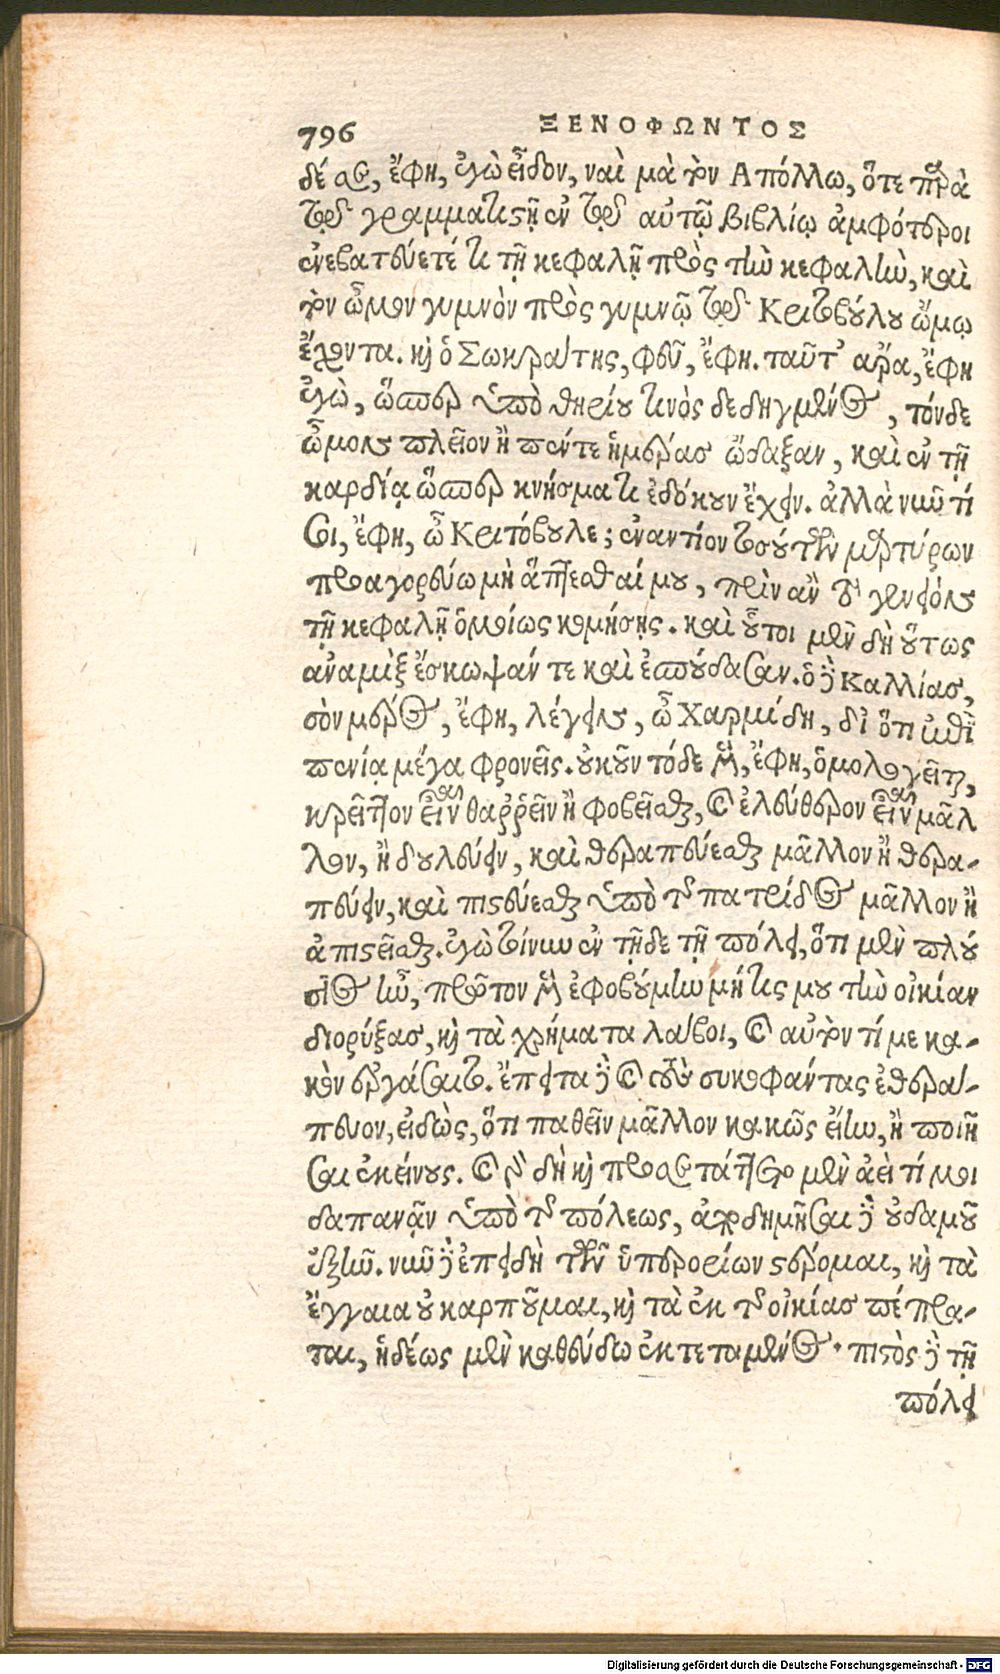 796 ΞΕΝΟΦΩΝΤΟΣ
δέ σε, ἔφη, ἐγὼ εἶδον, ναὶ μὰ τὸν Απόλλω, ὅτε παρὰ
τῷ γραμματιστῇ ἐν τῷ αὐτῷ βιβλίῳ ἀμφότεροι
ἐνεβατεύετέ τι τῇ κεφαλῇ πρὸς τὴν κεφαλὴν, καὶ
τὸν ὦμον γυμνὸν πρὸς γυμνῷ τῷ Κριτοβούλου ὤμῳ
ἔχοντα. καὶ ὁ Σωκράτης, φεῦ, ἔφη. ταῦτ' ἄρα, ἔφη
ἐγὼ, ὥσπερ ὑπὸ θηρίου τινὸς δεδηγμένος, τόνδε
ὦμον πλεῖον ἢ πέντε ἡμέρας ὤδαξαν, καὶ ἐν τῇ
καρδίᾳ ὥσπερ κνήσματι ἐδόκουν ἔχειν. ἀλλὰ νῦν τί
σοι, ἔφη, ὦ Κριτόβουλε; ἐναντίον τοσούτων μαρτύρων
προαγορεύω μὴ ἅπτεσθαί μου, πρὶν ἂν τὸ γένειον
τῇ κεφαλῇ ὁμοίως κομήσῃς. καὶ οὗτοι μὲν δὴ οὕτως
ἀναμὶξ ἔσκωψάν τε καὶ ἐσπούδασαν. ὁ δὲ Καλλίας,
σὸν μέρος, ἔφη, λέγειν, ὦ Χαρμίδη, δι' ὅτι ἐπὶ
πενίᾳ μέγα φρονεῖς. οὐκοῦν τόδε μὲν, ἔφη, ὁμολογεῖται,
κρεῖττον εἶναι θαῤῥεῖν ἢ φοβεῖσθαι, καὶ ἐλεύθερον εἶναι μᾶλ
λον, ἢ δουλεύειν, καὶ θεραπεύεσθαι μᾶλλον ἢ θερα-
πεύειν, καὶ πιστεύεσθαι ὑπὸ τῆς πατρίδος μᾶλλον ἢ
ἀπιστεῖσθαι. ἐγὼ τοίνυν ἐν τῇδε τῇ πόλει, ὅτι μὲν πλού
σιος ἦν, πρῶτον μὲν ἐφοβούμην μή τις μου τὴν οἰκίαν
διορύξας, καὶ τὰ χρήματα λάβοι, καὶ αὐτὸν τί με κα-
κὸν ἐργάσαιτο. ἔπειτα δὲ καὶ τοὺς συκοφάντας ἐθερά-
πευον, εἰδὼς, ὅτι παθεῖν μᾶλλον κακῶς εἴην, ἢ ποιῆ
σαι ἐκείνους. καὶ γὰρ δὴ καὶ προσετάττετο μὲν ἀεὶ τί μοι
δαπανᾷν ὑπὸ τῆς πόλεως, ἀποδημῆσαι δὲ οὐδαμοῦ
ἐξῆν. νῦν δὲ ἐπειδὴ τῶν ὑπερορίων στέρομαι, καὶ τὰ
ἔγγαια οὐ καρποῦμαι, καὶ τὰ ἐκ τῆς οἰκίας πέπρα-
ται, ἡδέως μὲν καθεύδω ἐκτεταμένος· πιστὸς δὲ τῇ
πόλει
Digitalisierung gefördert durch die Deutsche Forschungsgemeinschaft - DFG